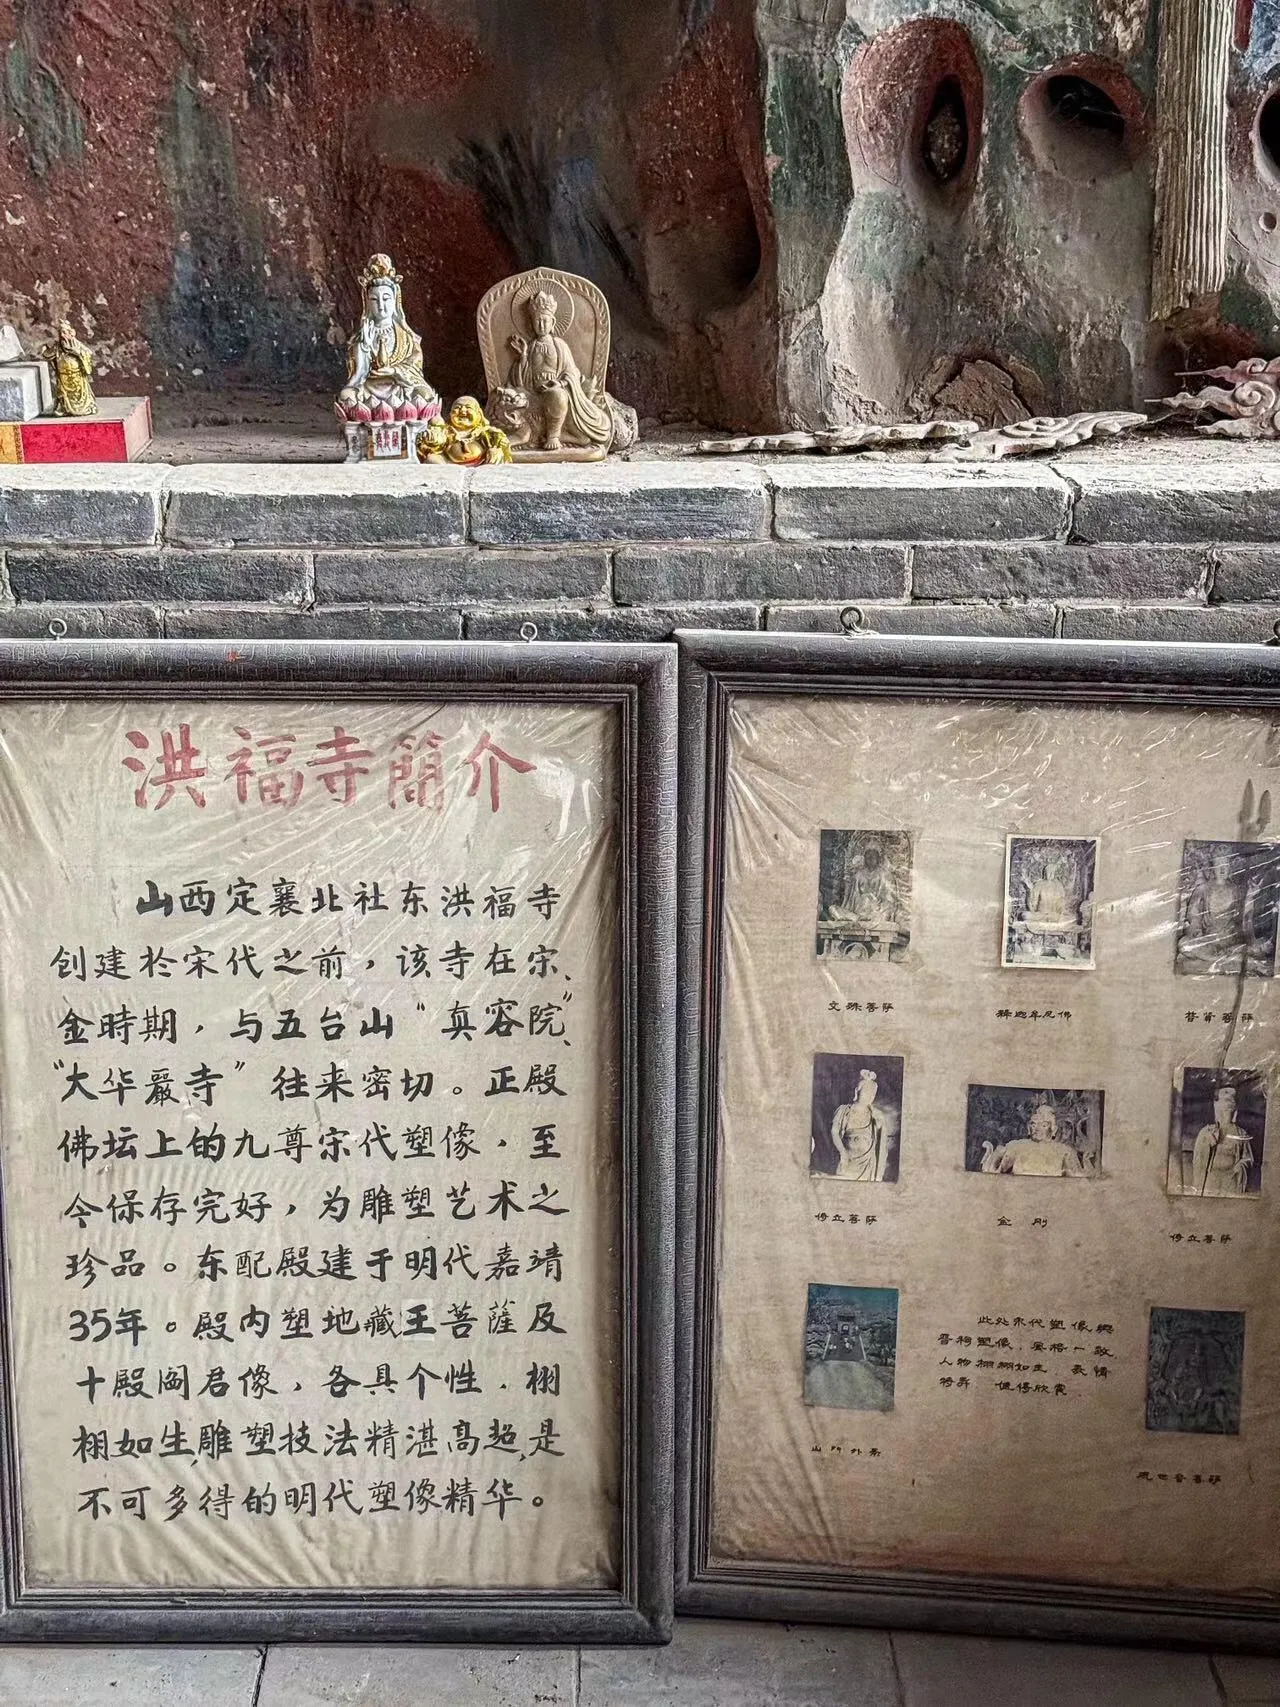 洪福寺簡介
山西定襄北社东洪福寺
创建於宋代之前，该寺在宋、
金時期，与五台山“真容院”、
“大华嚴寺”往来密切。正殿
佛坛上的九尊宋代塑像，至
今保存完好，为雕塑艺术之
珍品。东配殿建于明代嘉靖
35年。殿内塑地藏王菩薩及
十殿阎君像，各具个性，栩
栩如生，雕塑技法精湛高超，是
不可多得的明代塑像精华。
文殊菩萨
释迦牟尼佛
普贤菩萨
侍立菩萨
金刚
侍立菩萨
此处宋代塑像與
晋祠塑像，風格一致，
人物栩栩如生，表情
特异，值得欣赏。
山门外景
观世音菩萨